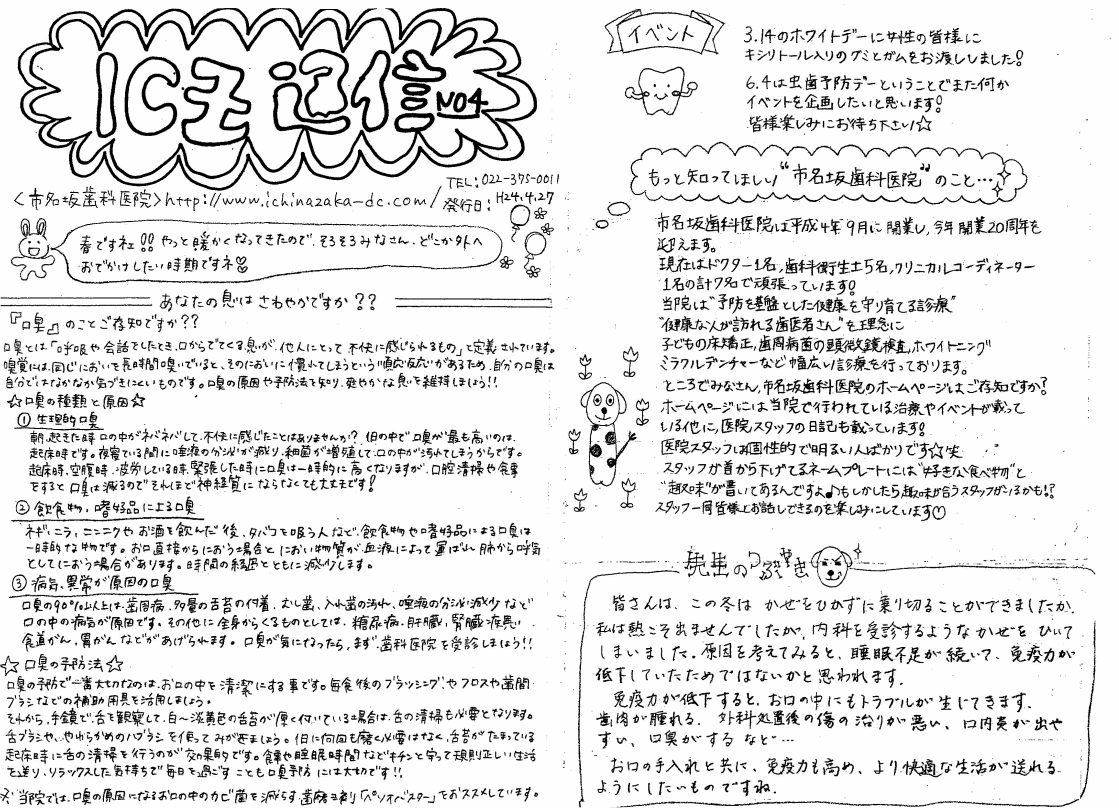 IC玉通信 NO4
TEL: 022-375-0011
<市名坂歯科医院>http://www.ichinazaka-dc.com/ 発行日: H24.4.27
春ですネェ!! やっと暖かくなってきたので、そろそろみなさん、どこか外へ
おでかけしたい時期ですネ♡
あなたの息はさわやかですか??
『口臭』のことご存知ですか??
口臭とは、「呼吸や会話でしたとき、口からでてくる息が、他人にとって不快に感じられるもの」と定義されています。
嗅覚には、同じにおいを長時間嗅いでいると、そのにおいに慣れてしまうという"順応反応"があるため、自分の口臭は
自分ではなかなか気づきにくいものです。口臭の原因や予防法を知り、爽やかな息を維持しましょう!!
☆口臭の種類と原因☆
① 生理的口臭
朝、起きた時口の中がネバネバして、不快に感じたことはありませんか? 1日の中で口臭が最も高いのは、
起床時です。夜寝ている間に唾液の分泌が減り、細菌が増殖して口の中が汚れてしまうからです。
起床時、空腹時、疲労している時、緊張した時に口臭は一時的に高くなりますが、口腔清掃や食事
をすると口臭は減るのでそれほど神経質にならなくても大丈夫です!
② 飲食物、嗜好品による口臭
ネギ、ニラ、ニンニクやお酒を飲んだ後、タバコを吸う人など、飲食物や嗜好品による口臭は
一時的な物です。お口直接からにおう場合と、におい物質が血液によって運ばれ、肺から呼気
としてにおう場合があります。時間の経過とともに減少します。
③ 病気、異常が原因の口臭
口臭の90%以上は、歯周病、多量の舌苔の付着、むし歯、入れ歯の汚れ、唾液の分泌減少など
口の中の病気が原因です。その他に全身からくるものとしては、糖尿病、肝臓、腎臓疾患、
食道がん、胃がんなどがあげられます。口臭が気になったら、まず歯科医院を受診しましょう!!
☆口臭の予防法☆
口臭の予防で一番大切なのは、お口の中を清潔にする事です。毎食後のブラッシングやフロスや歯間
ブラシなどの補助用具を活用しましょう。
それから、手鏡で舌を観察して、白〜淡黄色の舌苔が厚く付いている場合は、舌の清掃も必要となります。
舌ブラシや、やわらかめのハブラシを使ってみがきましょう。1日に何回も磨く必要はなく、舌苔がたまっている
起床時に舌の清掃を行うのが効果的です。食事や睡眠時間などをキチンと守って規則正しい生活
を送り、リラックスした気持ちで毎日を過ごすことも口臭予防には大切です!!
※当院では、口臭の原因になるお口の中のカビ菌を減らす歯磨き剤「ペリオバスター」をおススメしています。
イベント
3.14のホワイトデーに女性の皆様に
キシリトール入りのグミとガムをお渡ししました!
6.4は虫歯予防デーということでまた何か
イベントを企画したいと思います!
皆様楽しみにお待ち下さい☆
もっと知ってほしい"市名坂歯科医院"のこと…
市名坂歯科医院は平成4年9月に開業し、今年開業20周年を
迎えます。
現在はドクター1名,歯科衛生士5名,クリニカルコーディネーター
1名の計7名で頑張っています!
当院は"予防を基盤とした健康を守り育てる診療"
"健康な人が訪れる歯医者さん"を理念に
子どもの床矯正,歯周病菌の顕微鏡検査,ホワイトニング
ミラクルデンチャーなど幅広い診療を行っております。
ところでみなさん、市名坂歯科医院のホームページはご存知ですか?
ホームページには当院で行われている治療やイベントが載って
いる他に、医院スタッフの日記も載っています!
医院スタッフは個性的で明るい人ばかりです☆笑
スタッフが首から下げてるネームプレートには"好きな食べ物"と
"趣味"が書いてあるんですよ♪もしかしたら趣味が合うスタッフがいるかも!?
スタッフ一同皆様とお話しできるのを楽しみにしています
先生のつぶやき
皆さんは、この冬は かぜをひかずに乗り切ることができましたか。
私は熱こそ出ませんでしたが、内科を受診するようなかぜをひいて
しまいました。原因を考えてみると、睡眠不足が続いて、免疫力が
低下していたためではないかと思われます。
免疫力が低下すると、お口の中にもトラブルが生じてきます。
歯肉が腫れる、外科処置後の傷の治りが悪い、口内炎が出や
すい、口臭がする など…
お口の手入れと共に、免疫力も高め、より快適な生活が送れる
ようにしたいものですね。